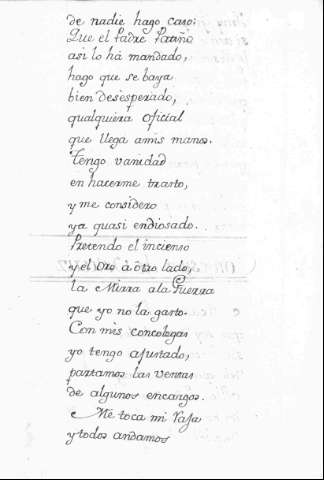 de nadie hago caso:
Que el Padre Patiño
asi lo há mandado,
hago que se baya
bien desesperado,
qualquiera oficial
que llega amis manos.
Tengo vanidad
en hacerme trasto,
y me considero
ya quasi endiosado.
Pretendo el incienso
y el Oro â ôtro lado,
la Mirra ala Guerra
que yo no la gasto.
Con mis concolegas
yo tengo ajustado,
partamos las ventas
de algunos encargos.
Me toca mi Paja
y todos andamos